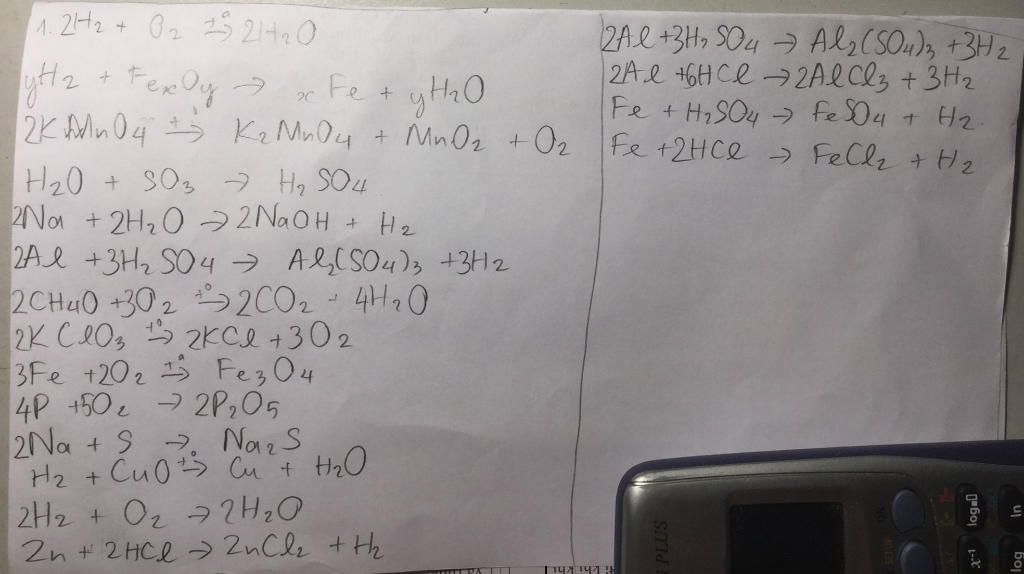 1. 2H₂ + O₂ →(t°) 2H₂O
yH₂ + FeₓOy → xFe + yH₂O
2KMnO₄ →(t°) K₂MnO₄ + MnO₂ + O₂
H₂O + SO₃ → H₂SO₄
2Na + 2H₂O → 2NaOH + H₂
2Al + 3H₂SO₄ → Al₂(SO₄)₃ + 3H₂
2CH₄O + 3O₂ →(t°) 2CO₂ + 4H₂O
2KClO₃ →(t°) 2KCl + 3O₂
3Fe + 2O₂ →(t°) Fe₃O₄
4P + 5O₂ → 2P₂O₅
2Na + S → Na₂S
H₂ + CuO →(t°) Cu + H₂O
2H₂ + O₂ → 2H₂O
Zn + 2HCl → ZnCl₂ + H₂
2Al + 3H₂SO₄ → Al₂(SO₄)₃ + 3H₂
2Al + 6HCl → 2AlCl₃ + 3H₂
Fe + H₂SO₄ → FeSO₄ + H₂.
Fe + 2HCl → FeCl₂ + H₂
PLUS
SETUP
ON
log
x⁻¹
ln
log